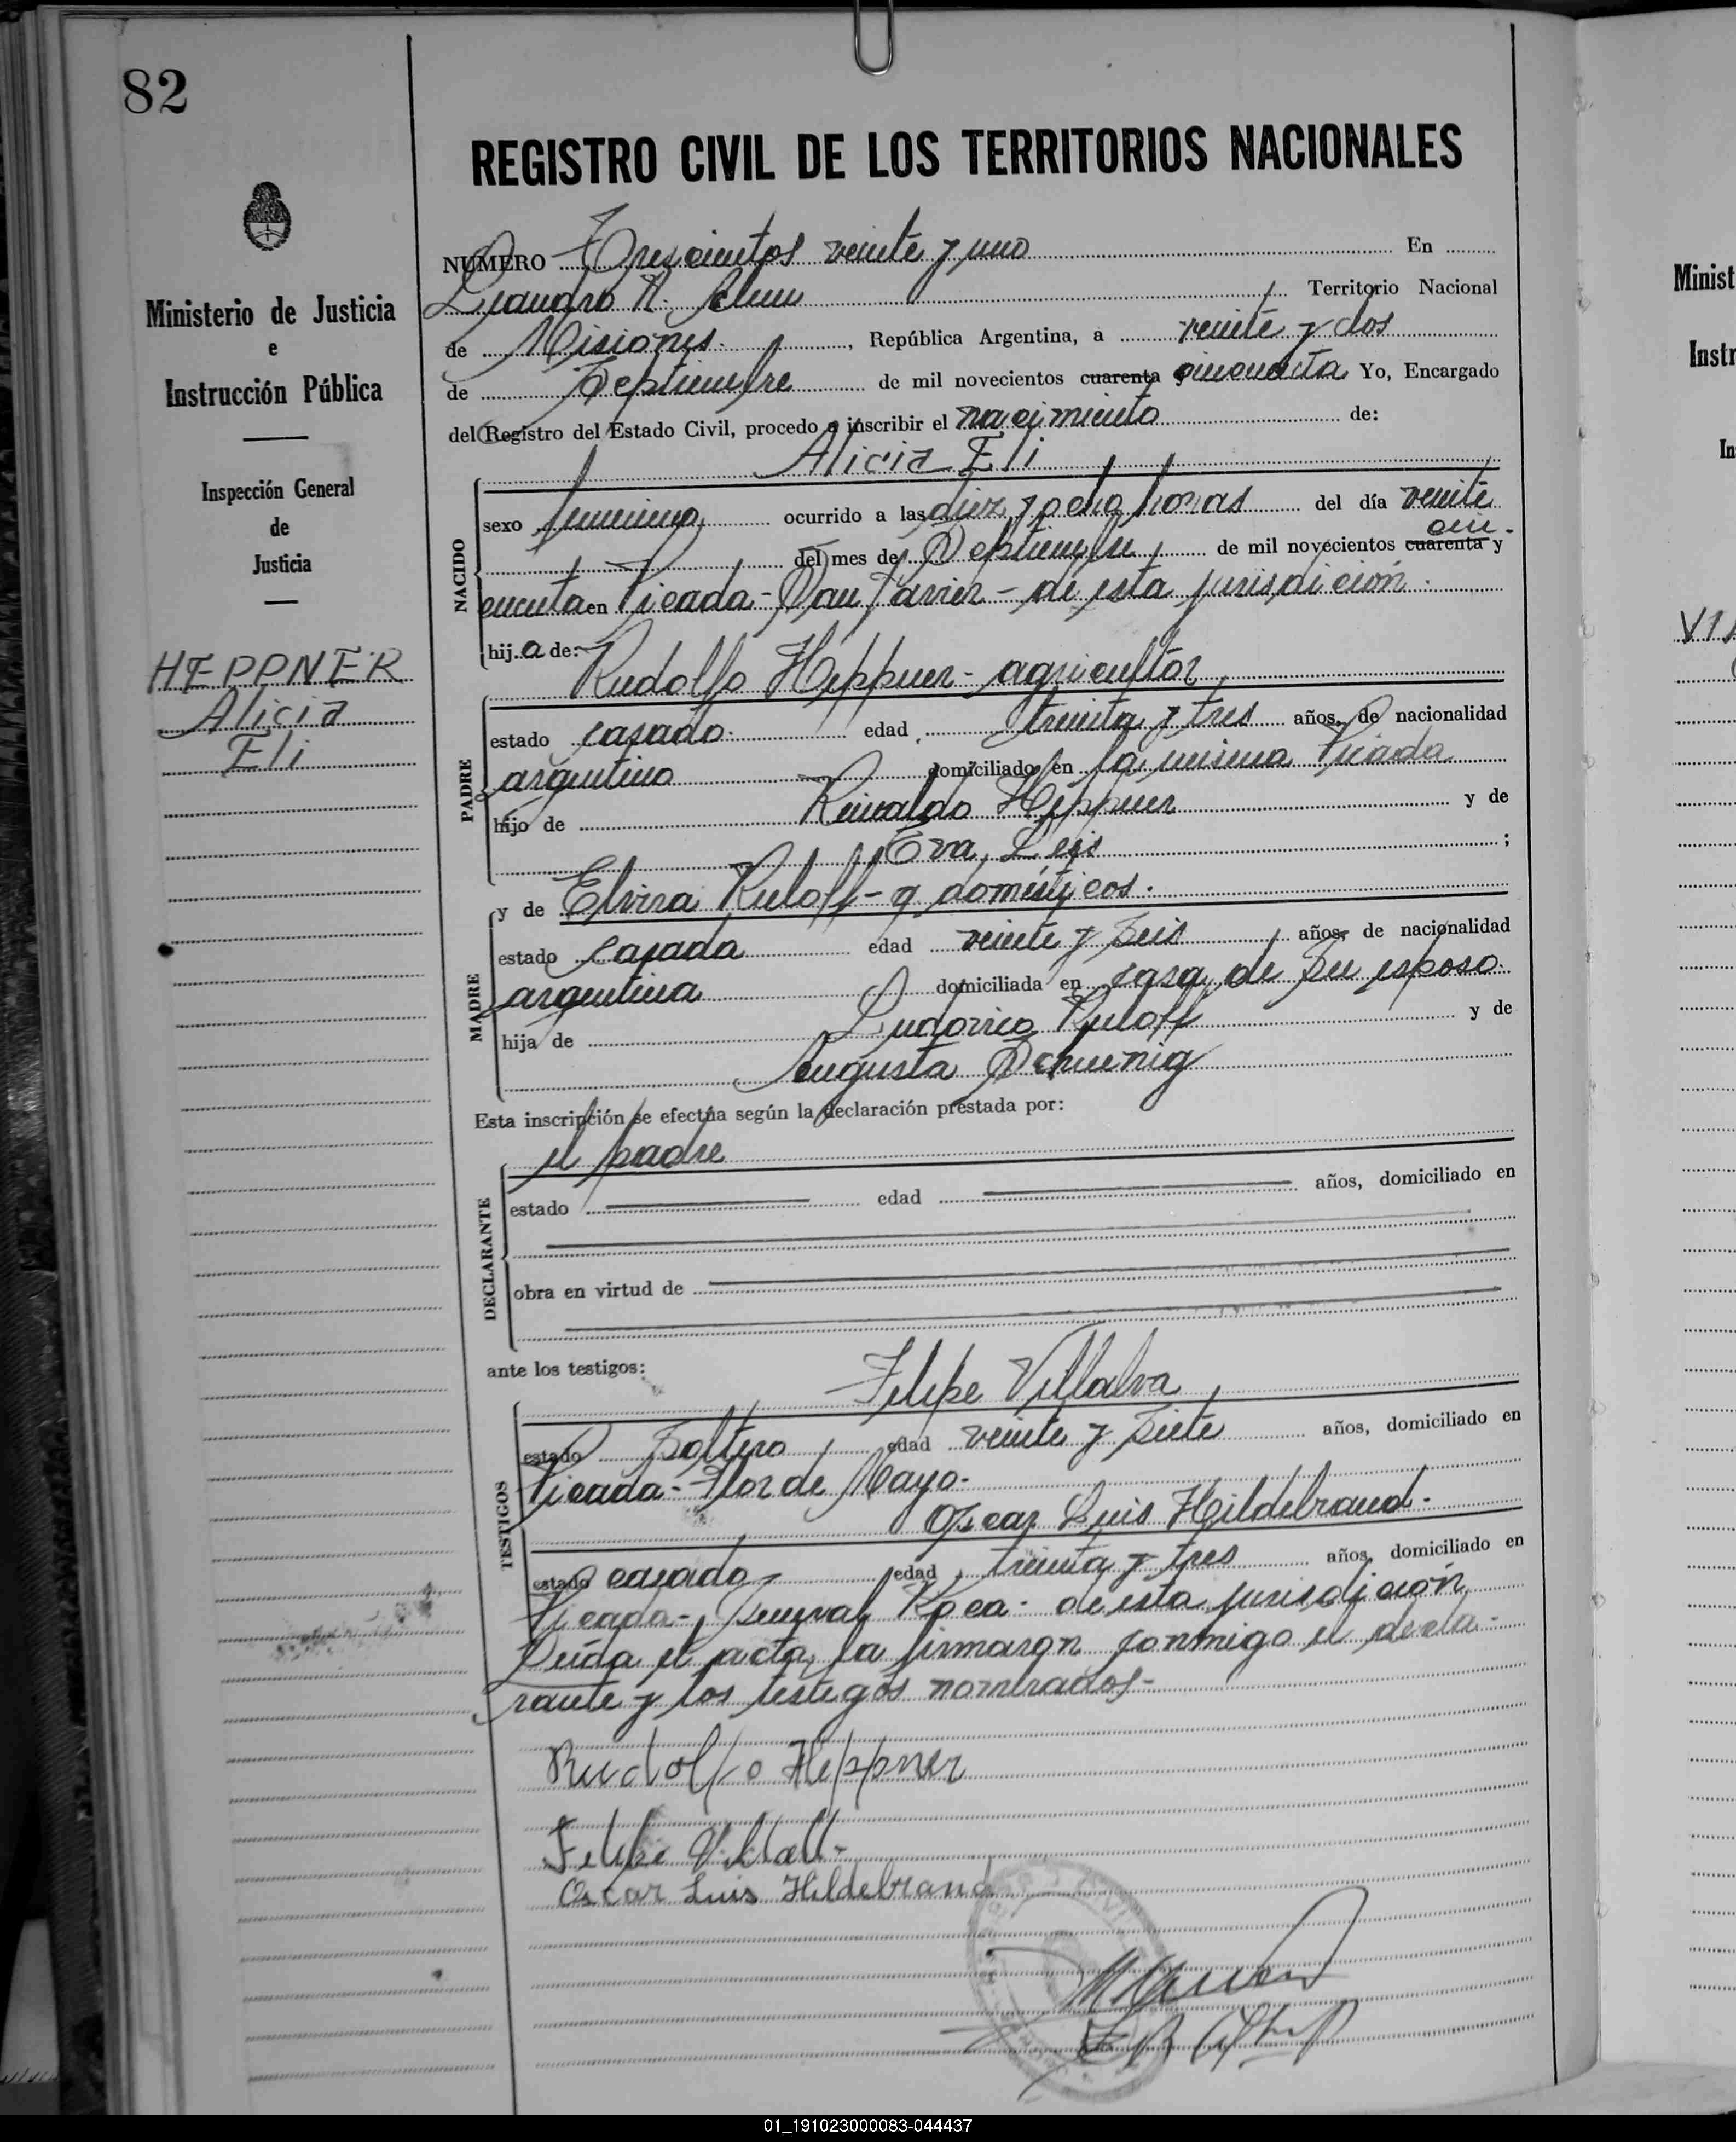 82
REGISTRO CIVIL DE LOS TERRITORIOS NACIONALES
Ministerio de Justicia
e
Instrucción Pública
Inspección General
de
Justicia
HEPPNER
Alicia
Eli
NUMERO Trescientos veinte y uno En
Leandro N. Alem Territorio Nacional
de Misiones. , República Argentina, a veinte y dos
de Septiembre de mil novecientos cuarenta y cincuenta Yo, Encargado
del Registro del Estado Civil, procedo a inscribir el nacimiento de:
Alicia Eli
NACIDO
sexo femenino ocurrido a las diez y ocho horas del día veinte
del mes de Septiembre de mil novecientos cuarenta y cin-
cuenta en Picada - San Javier - de esta jurisdicción.
hija de: Rudolfo Heppner - agricultor
PADRE
estado casado. edad treinta y tres años, de nacionalidad
argentino domiciliado en la misma Picada
hijo de Reinaldo Heppner y de
Eva Leis ;
y de Elvira Ruloff - q domésticos.
MADRE
estado casada edad veinte y seis años, de nacionalidad
argentina domiciliada en casa de su esposo.
hija de Ludovico Ruloff y de
Augusta Schuenig
Esta inscripción se efectúa según la declaración prestada por:
el padre
DECLARANTE
estado edad años, domiciliado en
obra en virtud de
ante los testigos: Felipe Villalva
TESTIGOS
estado soltero edad veinte y siete años, domiciliado en
Picada - Flor de Mayo.
Oscar Luis Hildebrand.
estado casado edad treinta y tres años, domiciliado en
Picada - General Roca - de esta jurisdicción
Leída el acta, la firmaron conmigo el decla-
rante y los testigos nombrados-
Rudolfo Heppner
Felipe
Oscar Luis Hildebrand
01_191023000083-044437
Minist
Instr
In